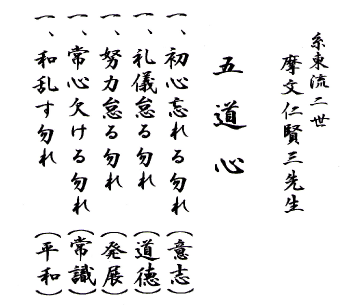 糸東流二世
摩文仁賢三先生
五道心
一、初心忘れる勿れ（意志）
一、礼儀怠る勿れ（道徳）
一、努力怠る勿れ（発展）
一、常心欠ける勿れ（常識）
一、和乱す勿れ（平和）